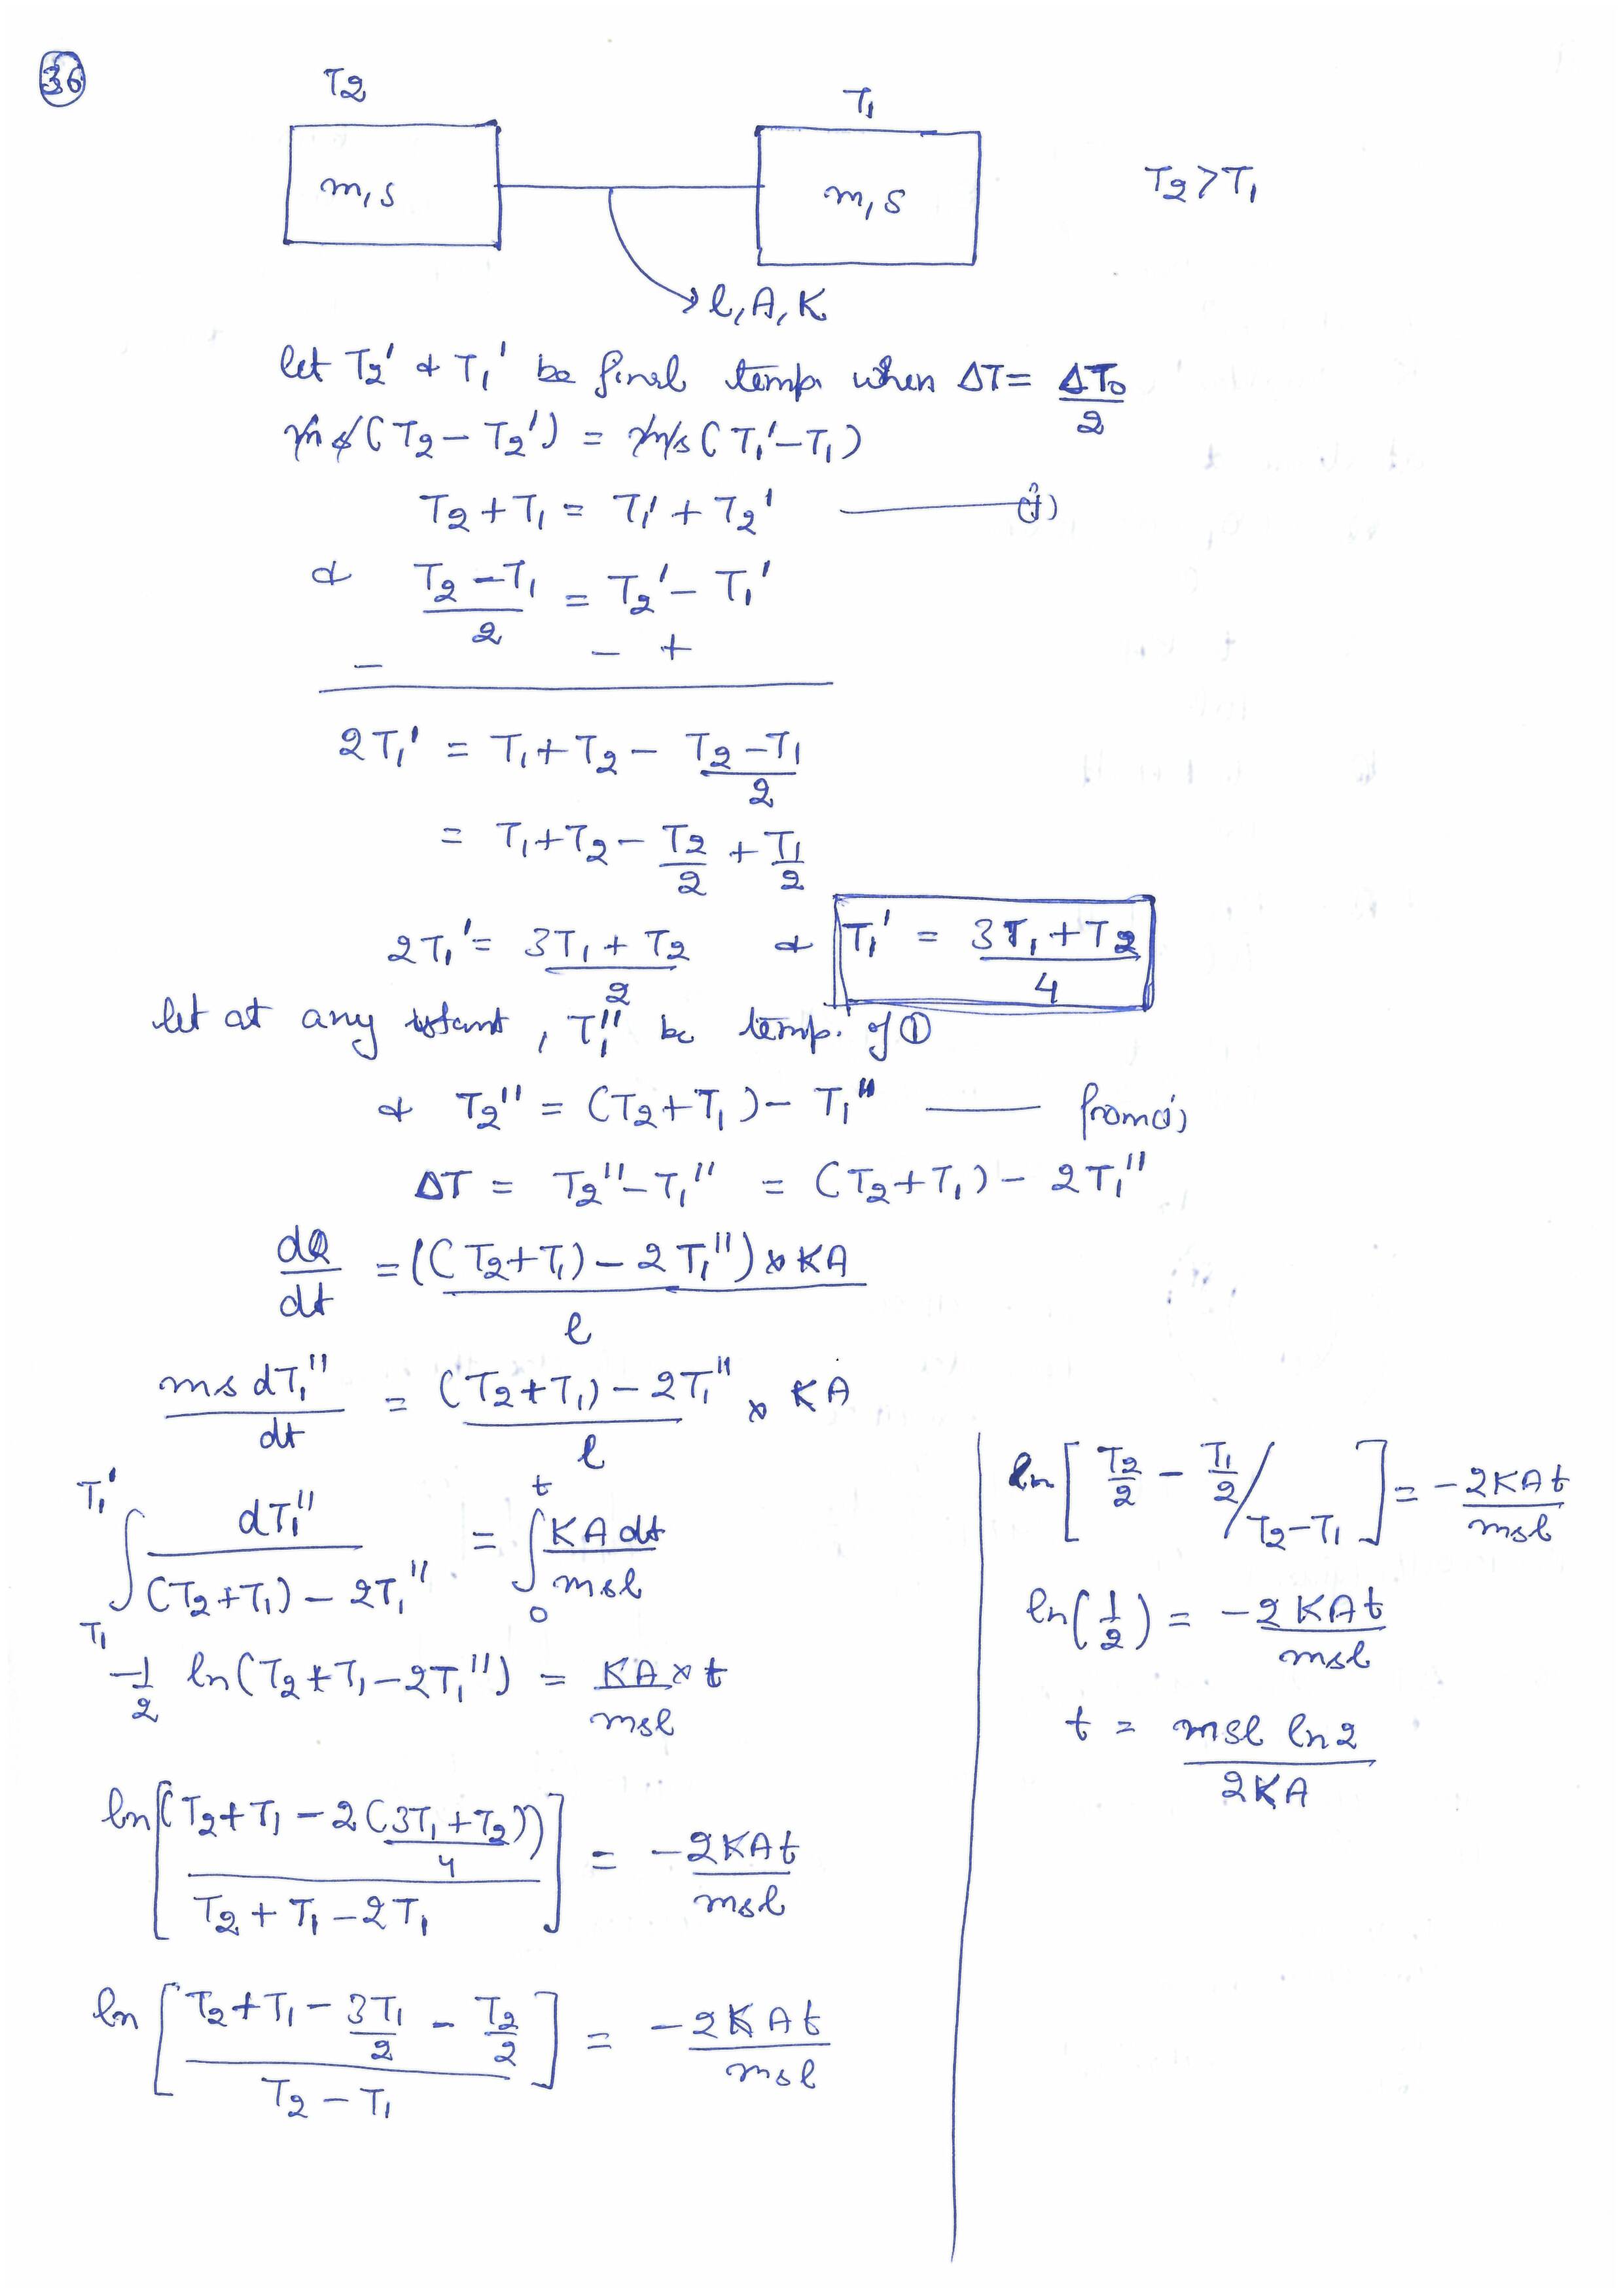 36
T2
T1
m, s
m, s
T2 > T1
l, A, K
let T2' & T1' be final temp. when ΔT = ΔT0/2
ms(T2 - T2') = ms(T1' - T1)
T2 + T1 = T1' + T2' ——— (i)
& (T2 - T1)/2 = T2' - T1'
- - +
2T1' = T1 + T2 - (T2 - T1)/2
= T1 + T2 - T2/2 + T1/2
2T1' = (3T1 + T2)/2 & T1' = (3T1 + T2)/4
let at any instant, T1'' be temp. of ①
& T2'' = (T2 + T1) - T1'' ——— from (i)
ΔT = T2'' - T1'' = (T2 + T1) - 2T1''
dQ/dt = ((T2 + T1) - 2T1'') × KA / l
ms dT1''/dt = (T2 + T1) - 2T1''/l × KA
∫_{T1}^{T1'} dT1''/((T2 + T1) - 2T1'') = ∫_{0}^{t} KA dt/msl
-1/2 ln(T2 + T1 - 2T1'') = KA × t/msl
ln[(T2 + T1 - 2(3T1 + T2)/4))/(T2 + T1 - 2T1)] = -2KAt/msl
ln[(T2 + T1 - 3T1/2 - T2/2)/(T2 - T1)] = -2KAt/msl
ln[T2/2 - T1/2 / T2 - T1] = -2KAt/msl
ln(1/2) = -2KAt/msl
t = msl ln2/2KA